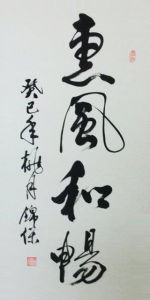 惠風和暢
癸巳年桃月錦保